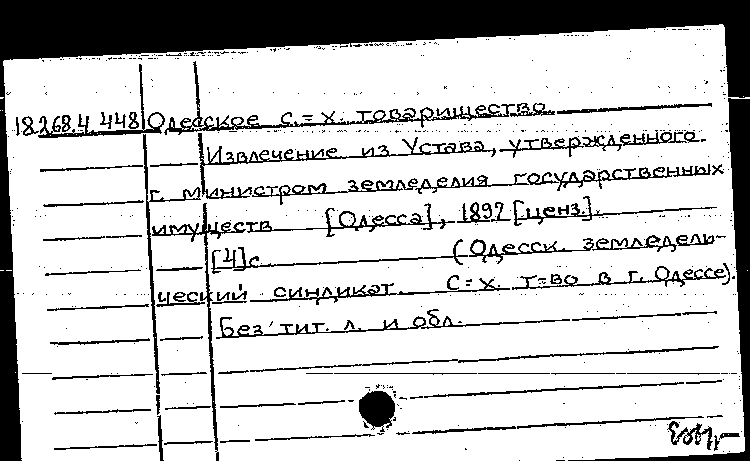 18.268.4.448 Одесское с.=х. товарищество.
Извлечение из Устава, утвержденного
г. министром земледелия государственных
имуществ [Одесса], 1897 [ценз.].
[4]с. (Одесск. земледель-
ческий синдикат. С=х. т=во в г. Одессе).
Без тит. л. и обл.